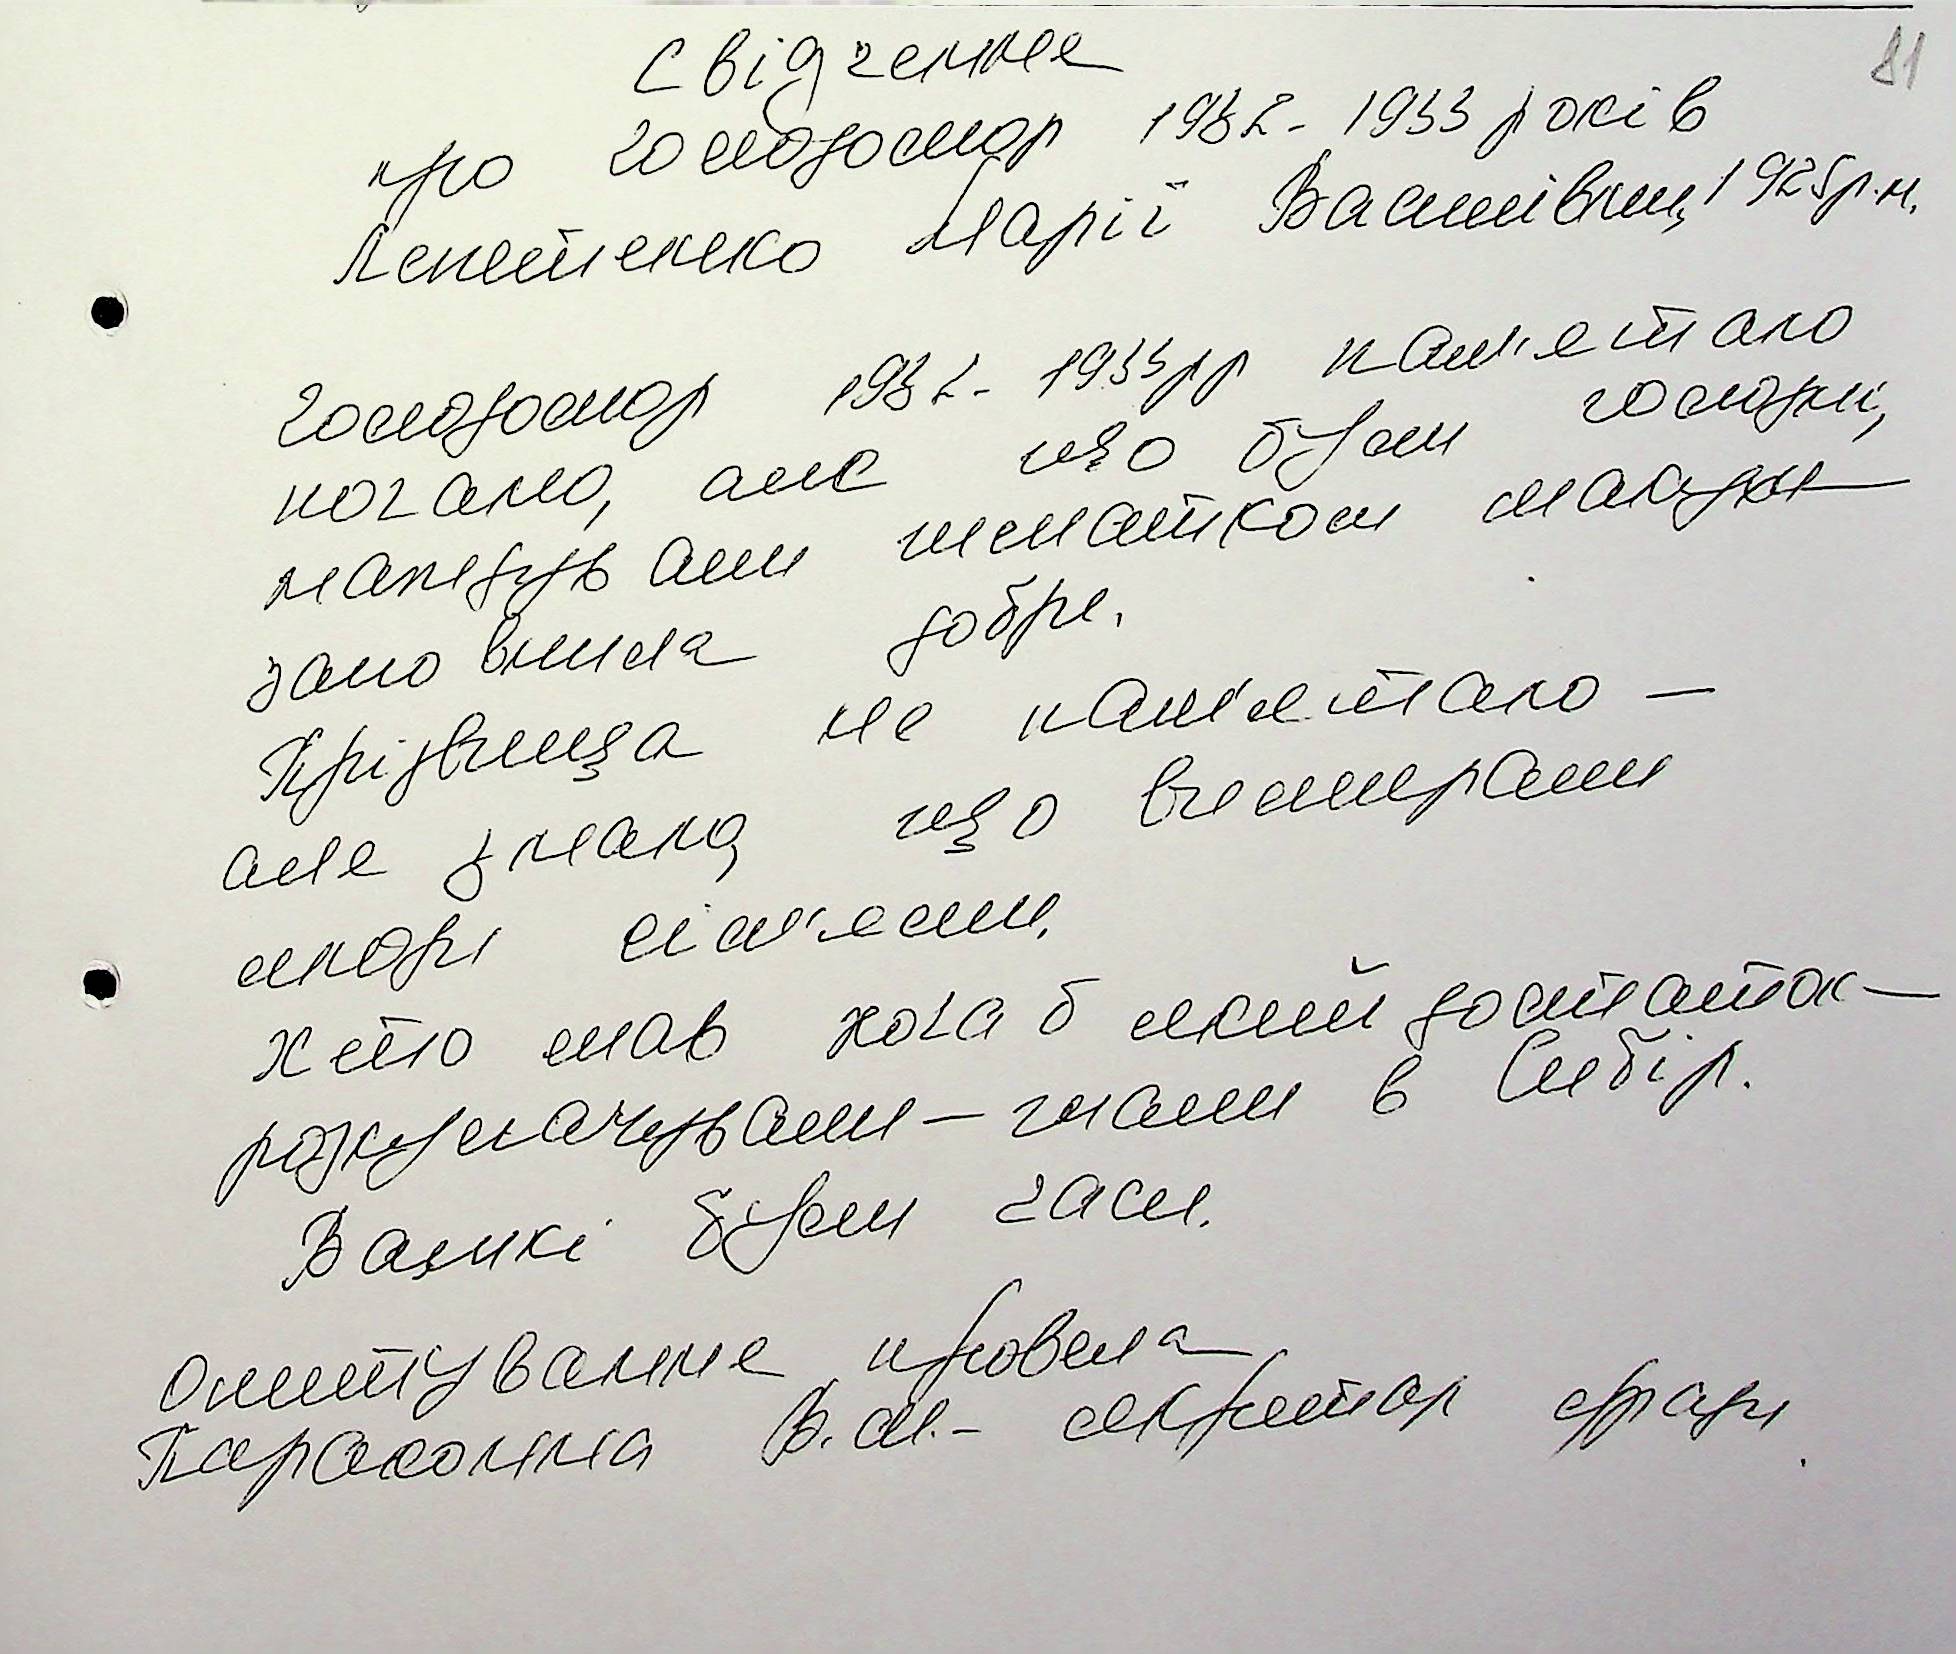 81
Свідчення
про Голодомор 1932-1933 років
Лепетенко Марії Василівни, 1925р.н.
Голодомор 1932-1933рр пам'ятаю
погано, але що були голодні,
мандрували шматком макухи
запо вжила добре.
Прізвища не пам'ятаю —
але знаю, що вимирали
люди сім'ями.
Хто мав хоча б який достаток —
розкулачували — гнали в Сибір.
Важкі були часи.
Опитування провела
Парахонна В.М. - секретар с/ради.